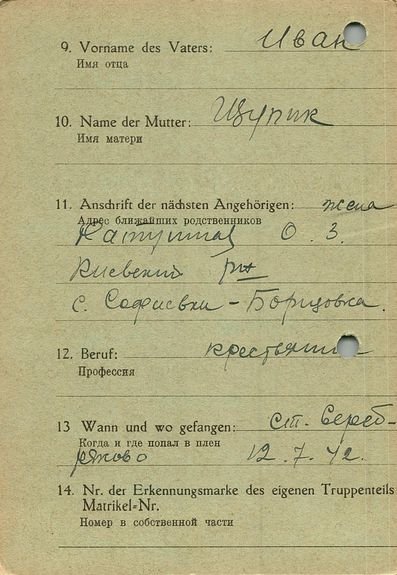 9. Vorname des Vaters: Иван
Имя отца
10. Name der Mutter: Щупик
Имя матери
11. Anschrift der nächsten Angehörigen: жена
Адрес ближайших родственников
О. З.
Киевский
с. Софиевки - Борщовка.
12. Beruf: крестьянин
Профессия
13 Wann und wo gefangen: ст. Сереб-
Когда и где попал в плен
ряково 12. 7. 42.
14. Nr. der Erkennungsmarke des eigenen Truppenteils
Matrikel-Nr.
Номер в собственной части